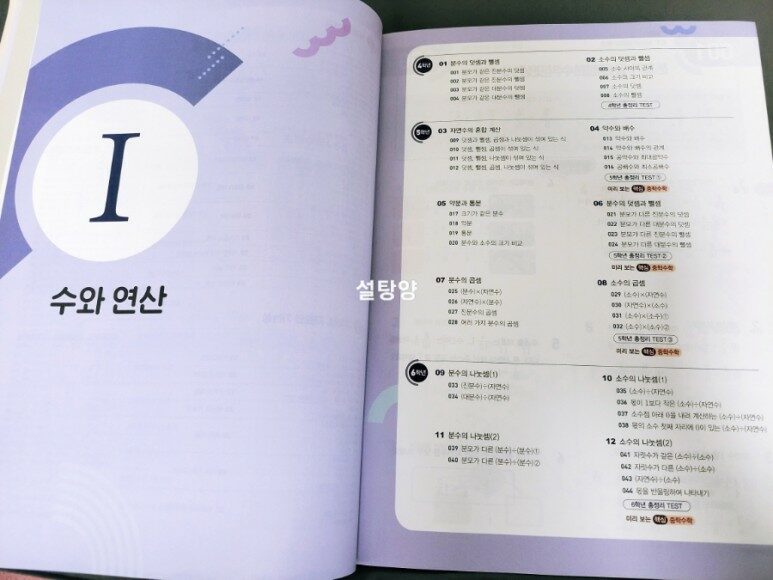 I
수와 연산
설탕양
4학년
01 분수의 덧셈과 뺄셈
001 분모가 같은 진분수의 덧셈
002 분모가 같은 대분수의 덧셈
003 분모가 같은 진분수의 뺄셈
004 분모가 같은 대분수의 뺄셈
02 소수의 덧셈과 뺄셈
005 소수 사이의 관계
006 소수의 크기 비교
007 소수의 덧셈
008 소수의 뺄셈
4학년 총정리 TEST
5학년
03 자연수의 혼합 계산
009 덧셈, 뺄셈, 곱셈과 나눗셈이 섞여 있는 식
010 덧셈, 뺄셈, 곱셈이 섞여 있는 식
011 덧셈, 뺄셈, 나눗셈이 섞여 있는 식
012 덧셈, 뺄셈, 곱셈, 나눗셈이 섞여 있는 식
04 약수와 배수
013 약수와 배수
014 약수와 배수의 관계
015 공약수와 최대공약수
016 공배수와 최소공배수
5학년 총정리 TEST ①
미리 보는 핵심 중학수학
05 약분과 통분
017 크기가 같은 분수
018 약분
019 통분
020 분수와 소수의 크기 비교
06 분수의 덧셈과 뺄셈
021 분모가 다른 진분수의 덧셈
022 분모가 다른 대분수의 덧셈
023 분모가 다른 진분수의 뺄셈
024 분모가 다른 대분수의 뺄셈
5학년 총정리 TEST ②
미리 보는 핵심 중학수학
07 분수의 곱셈
025 (분수)×(자연수)
026 (자연수)×(분수)
027 진분수의 곱셈
028 여러 가지 분수의 곱셈
08 소수의 곱셈
029 (소수)×(자연수)
030 (자연수)×(소수)
031 (소수)×(소수)①
032 (소수)×(소수)②
5학년 총정리 TEST ③
미리 보는 핵심 중학수학
6학년
09 분수의 나눗셈(1)
033 (진분수)÷(자연수)
034 (대분수)÷(자연수)
10 소수의 나눗셈(1)
035 (소수)÷(자연수)
036 몫이 1보다 작은 (소수)÷(자연수)
037 소수점 아래 0을 내려 계산하는 (소수)÷(자연수)
038 몫의 소수 첫째 자리에 0이 있는 (소수)÷(자연수)
11 분수의 나눗셈(2)
039 분모가 다른 (분수)÷(분수)①
040 분모가 다른 (분수)÷(분수)②
12 소수의 나눗셈(2)
041 자릿수가 같은 (소수)÷(소수)
042 자릿수가 다른 (소수)÷(소수)
043 (자연수)÷(소수)
044 몫을 반올림하여 나타내기
6학년 총정리 TEST
미리 보는 핵심 중학수학